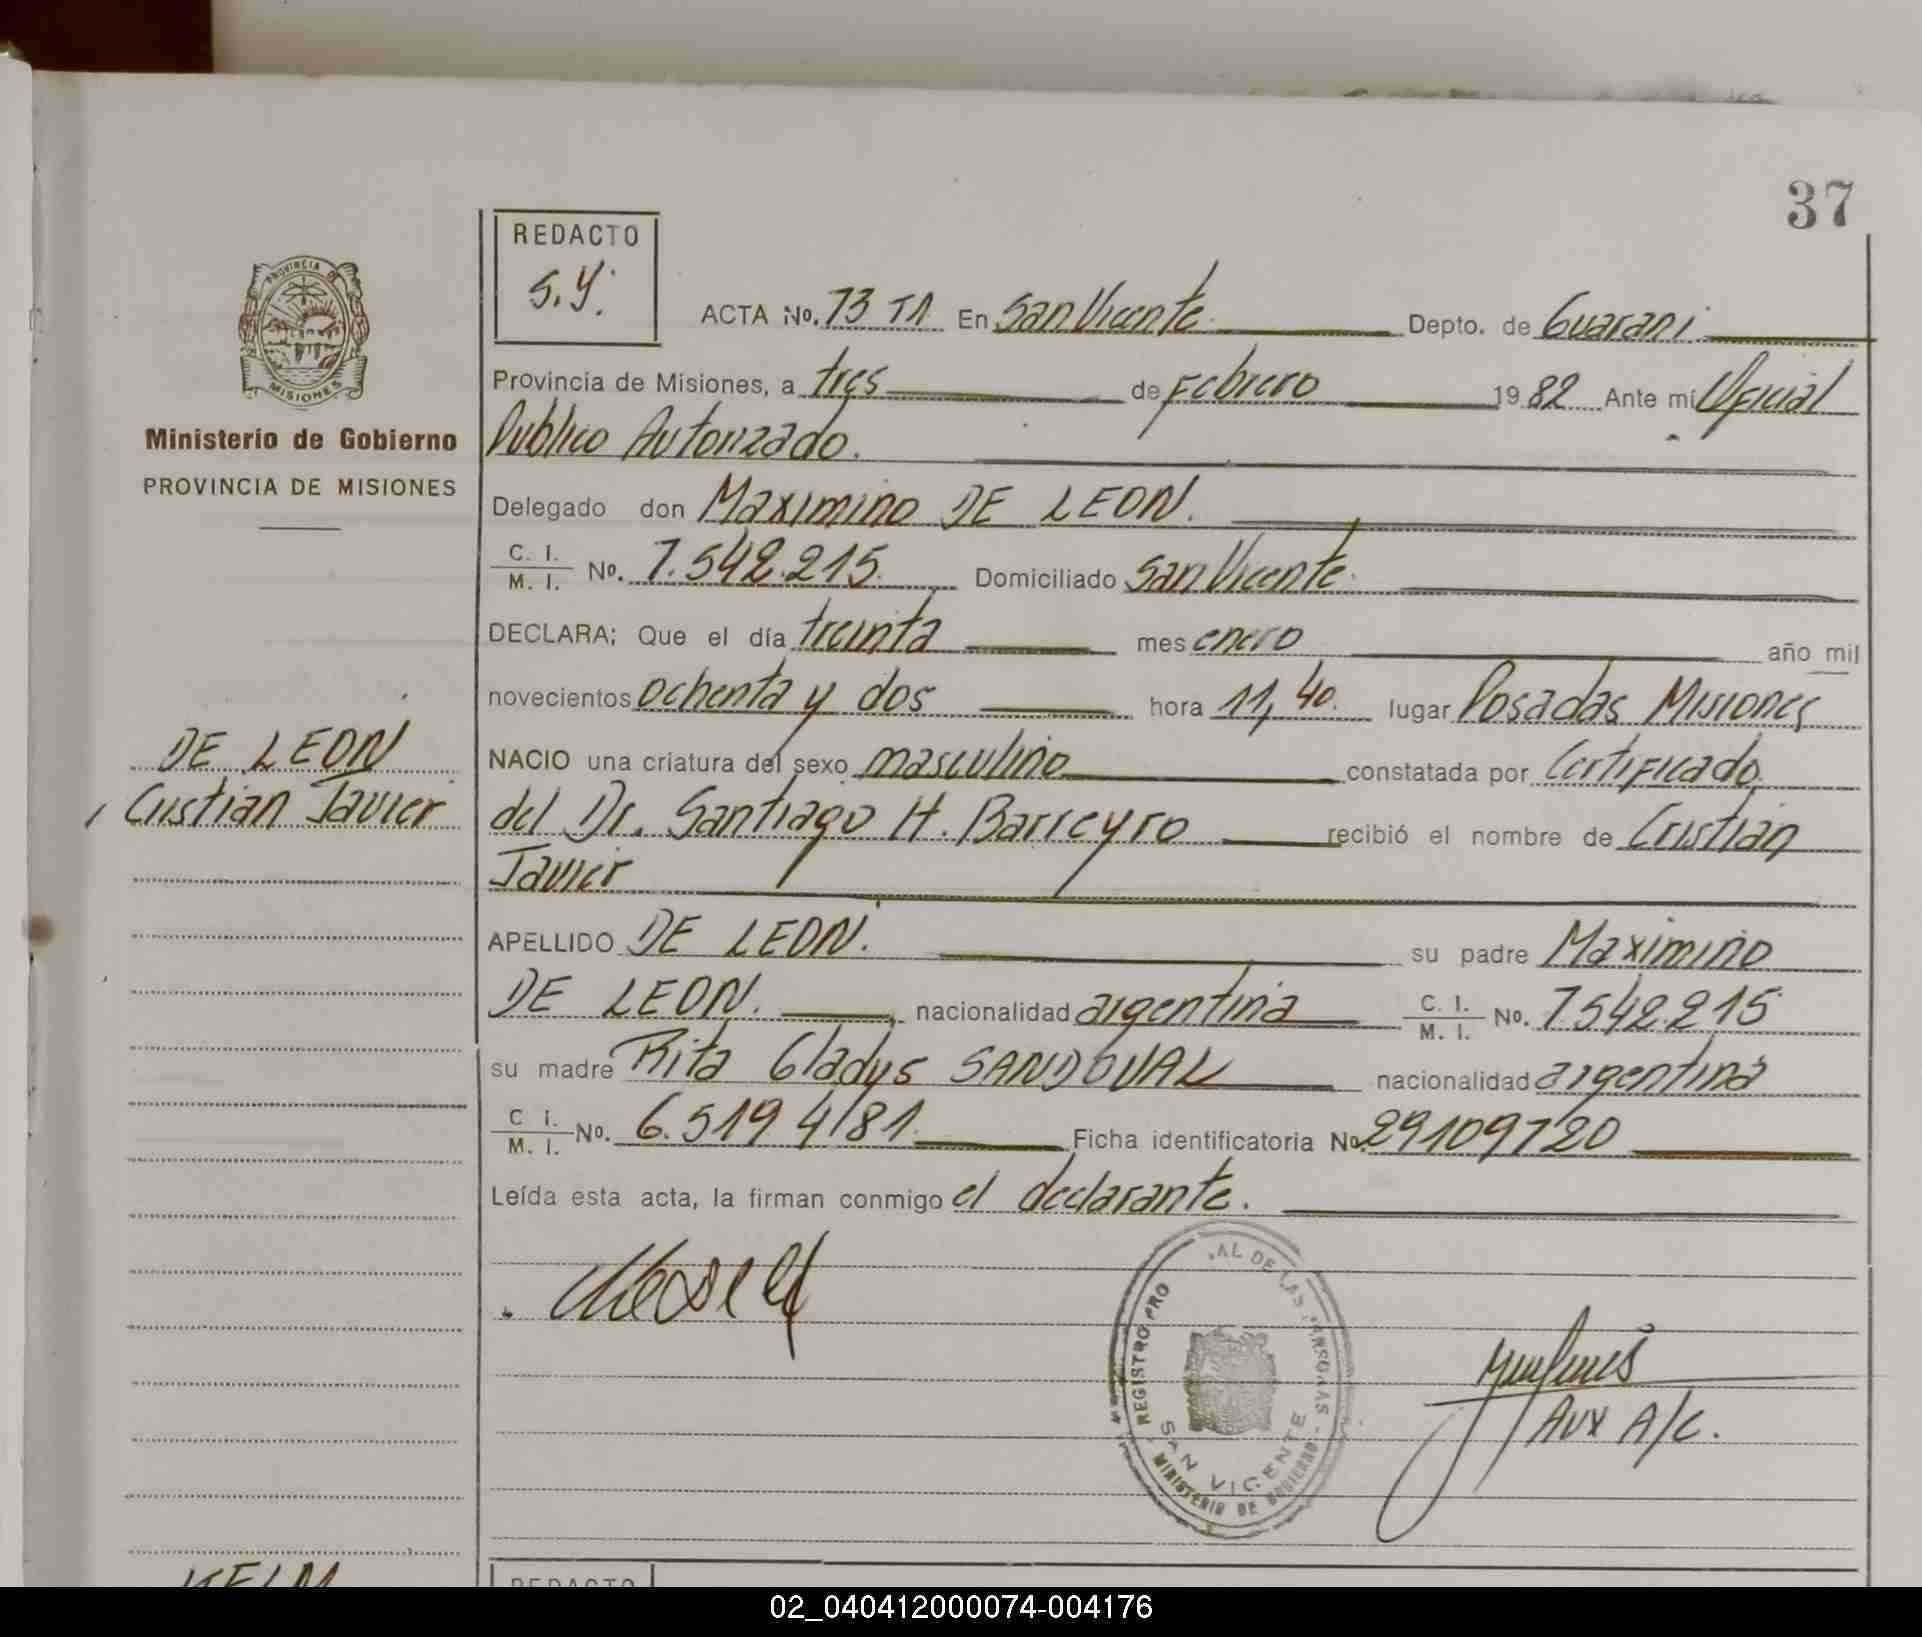 37
REDACTO
S.Y.
ACTA No. 73 T1 En San Vicente Depto. de Guarani
Provincia de Misiones, a tres de Febrero 1982 Ante mi Oficial
Publico Autorizado.
Delegado don Maximino DE LEON.
C. I. / M. I. No. 7.542.215 Domiciliado San Vicente.
DECLARA; Que el día treinta mes enero año mil
novecientos ochenta y dos hora 11,40. lugar Posadas Misiones
NACIO una criatura del sexo masculino constatada por Certificado
del Dr. Santiago H. Barreyro recibió el nombre de Cristian
Javier
APELLIDO DE LEON. su padre Maximino
DE LEON. nacionalidad argentina C. I. / M. I. No. 7.542.215
su madre Rita Gladys SANDOVAL nacionalidad argentina
C I. / M. I. No. 6.519.481 Ficha identificatoria No 29109720
Leída esta acta, la firman conmigo el declarante.
AUX A/C.
REGISTRO PRO AL DE LAS PERSONAS - MINISTERIO DE GOBIERNO
SAN VICENTE
PROVINCIA DE
MISIONES
Ministerio de Gobierno
PROVINCIA DE MISIONES
DE LEON
Cristian Javier
KELM
REDACTO
02_040412000074-004176